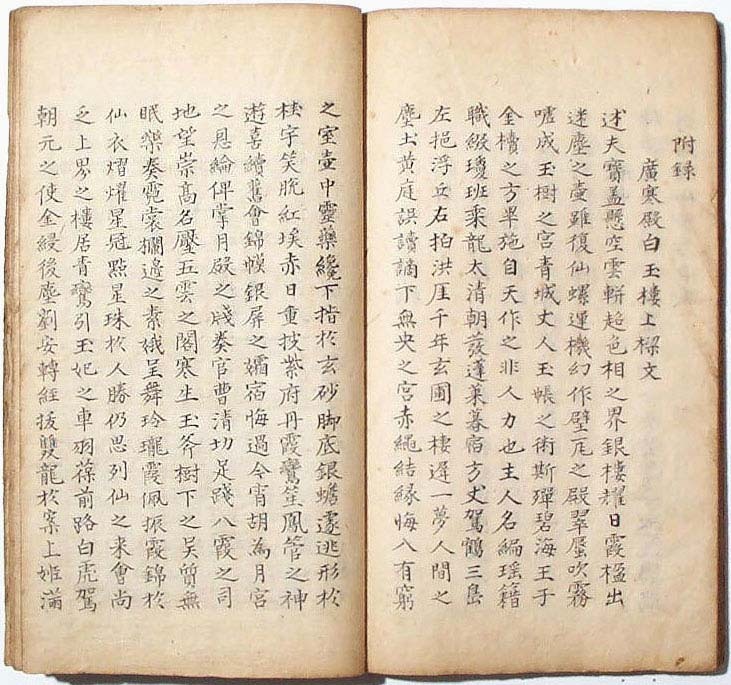 附録
廣寒殿白玉樓上樑文
述夫寶盖懸空雲軿超色相之界銀樓耀日霞楹出
迷塵之壺雖復仙螺運機幻作壁瓦之殿翠蜃吹霧
噓成玉樹之宮青城丈人玉帳之術斯殫碧海王子
金櫝之方畢施自天作之非人力也主人名編瑤籍
職綴瓊班乘龍太清朝發蓬萊暮宿方丈駕鶴三島
左挹浮丘右拍洪厓千年玄圃之棲遲一夢人間之
塵土黃庭誤讀謫下無央之宮赤繩結緣悔入有窮
之室壺中靈藥纔下指於玄砂脚底銀蟾遽逃形於
桂宇笑脫紅埃赤日重披紫府丹霞鸞笙鳳管之神
遊喜續舊會錦幙銀屏之孀宿悔過今宵胡為月宮
之恩綸俾掌月殿之牋奏官曹清切足踐八霞之司
地望崇高名壓五雲之閣寒生玉斧樹下之吳質無
眠樂奏霓裳欄邊之素娥呈舞玲瓏霞佩振霞錦於
仙衣熠燿星冠點星珠於人勝仍思列仙之来會尚
乏上界之樓居青鸞引玉妃之車羽葆前路白虎駕
朝元之使金綬後塵劉安轉経拔雙龍於案上姬滿